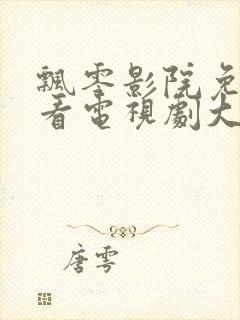 飄零影院免
看電視劇大
唐雩